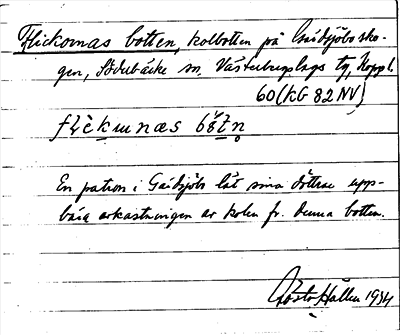 Flickornas botten, kolbotten på Gnidsjöbo sko-
gen, Söderbärke sn, Västerbergslags tg, Koppb. l.
60 (KG 82 NV)
flickunæs båtn
En patron i Gnidsjöb lät sina döttrar upp-
bära avkastningen av kolen fr. denna botten.
Gösta Hallen 1934